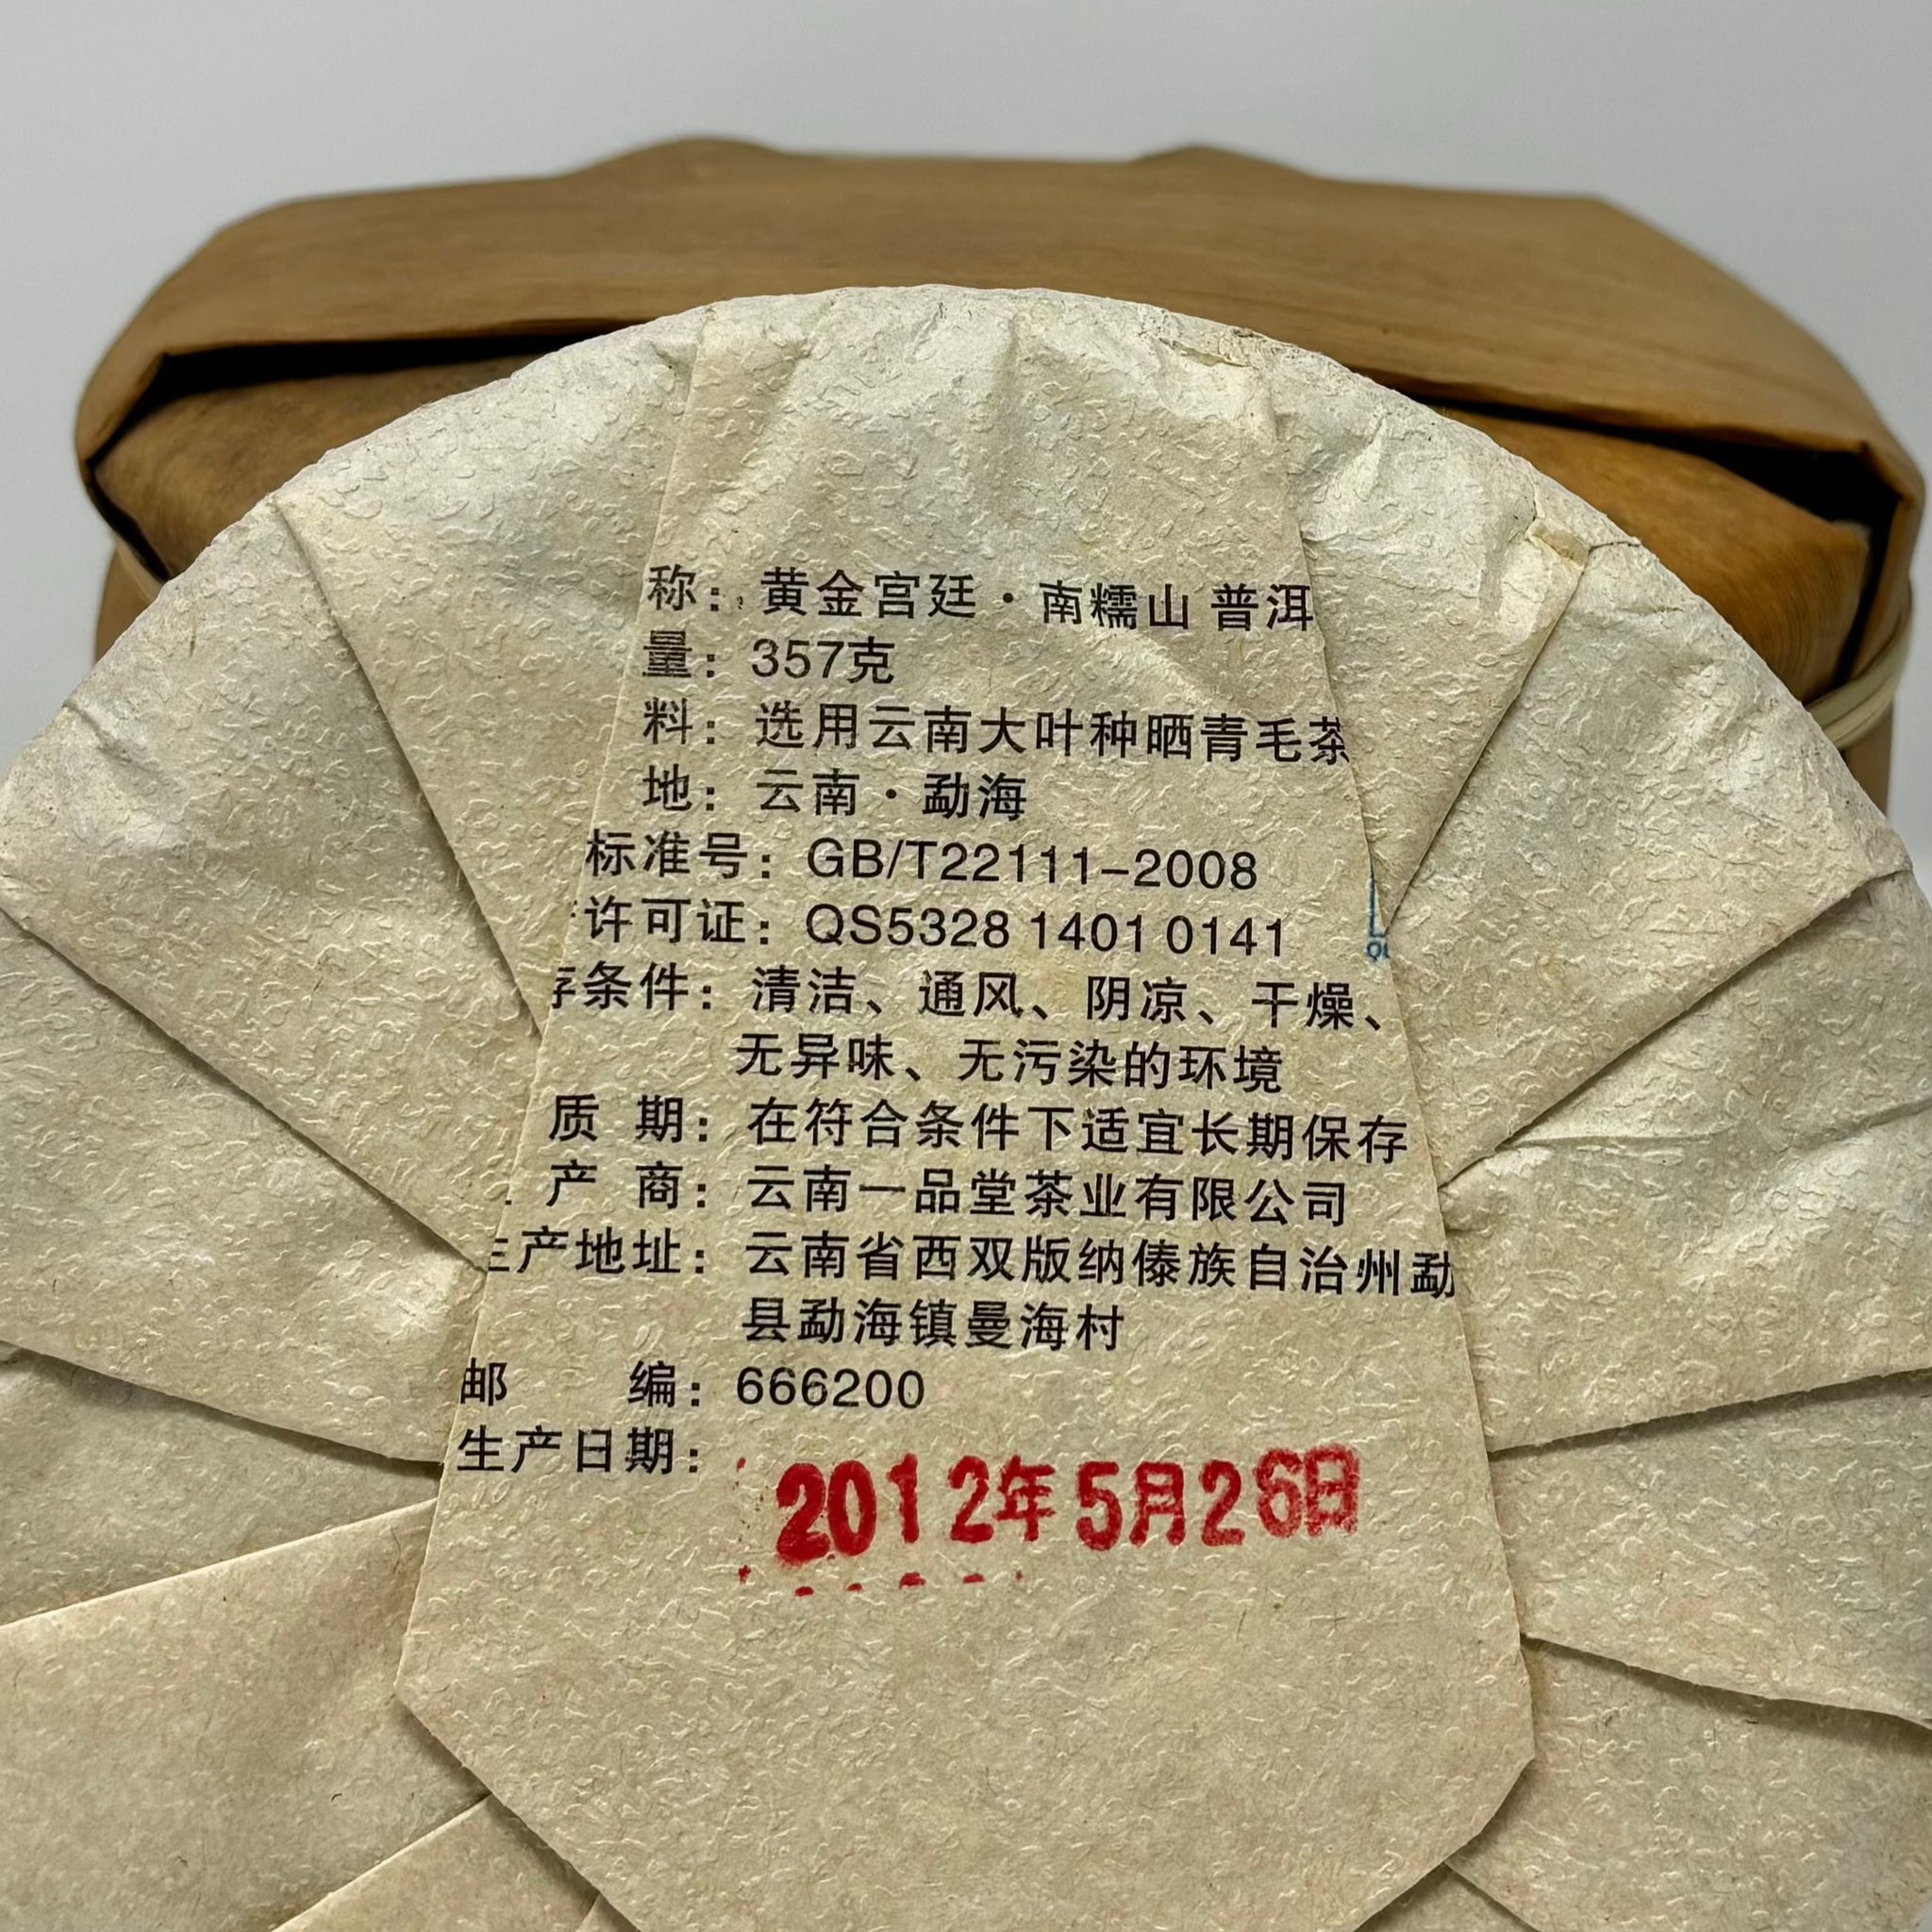 称：黄金宫廷·南糯山 普洱
量：357克
料：选用云南大叶种晒青毛茶
地：云南·勐海
标准号：GB/T22111-2008
许可证：QS5328 1401 0141
存条件：清洁、通风、阴凉、干燥、
无异味、无污染的环境
质 期：在符合条件下适宜长期保存
产 商：云南一品堂茶业有限公司
生产地址：云南省西双版纳傣族自治州勐
县勐海镇曼海村
邮 编：666200
生产日期：
2012年5月26日